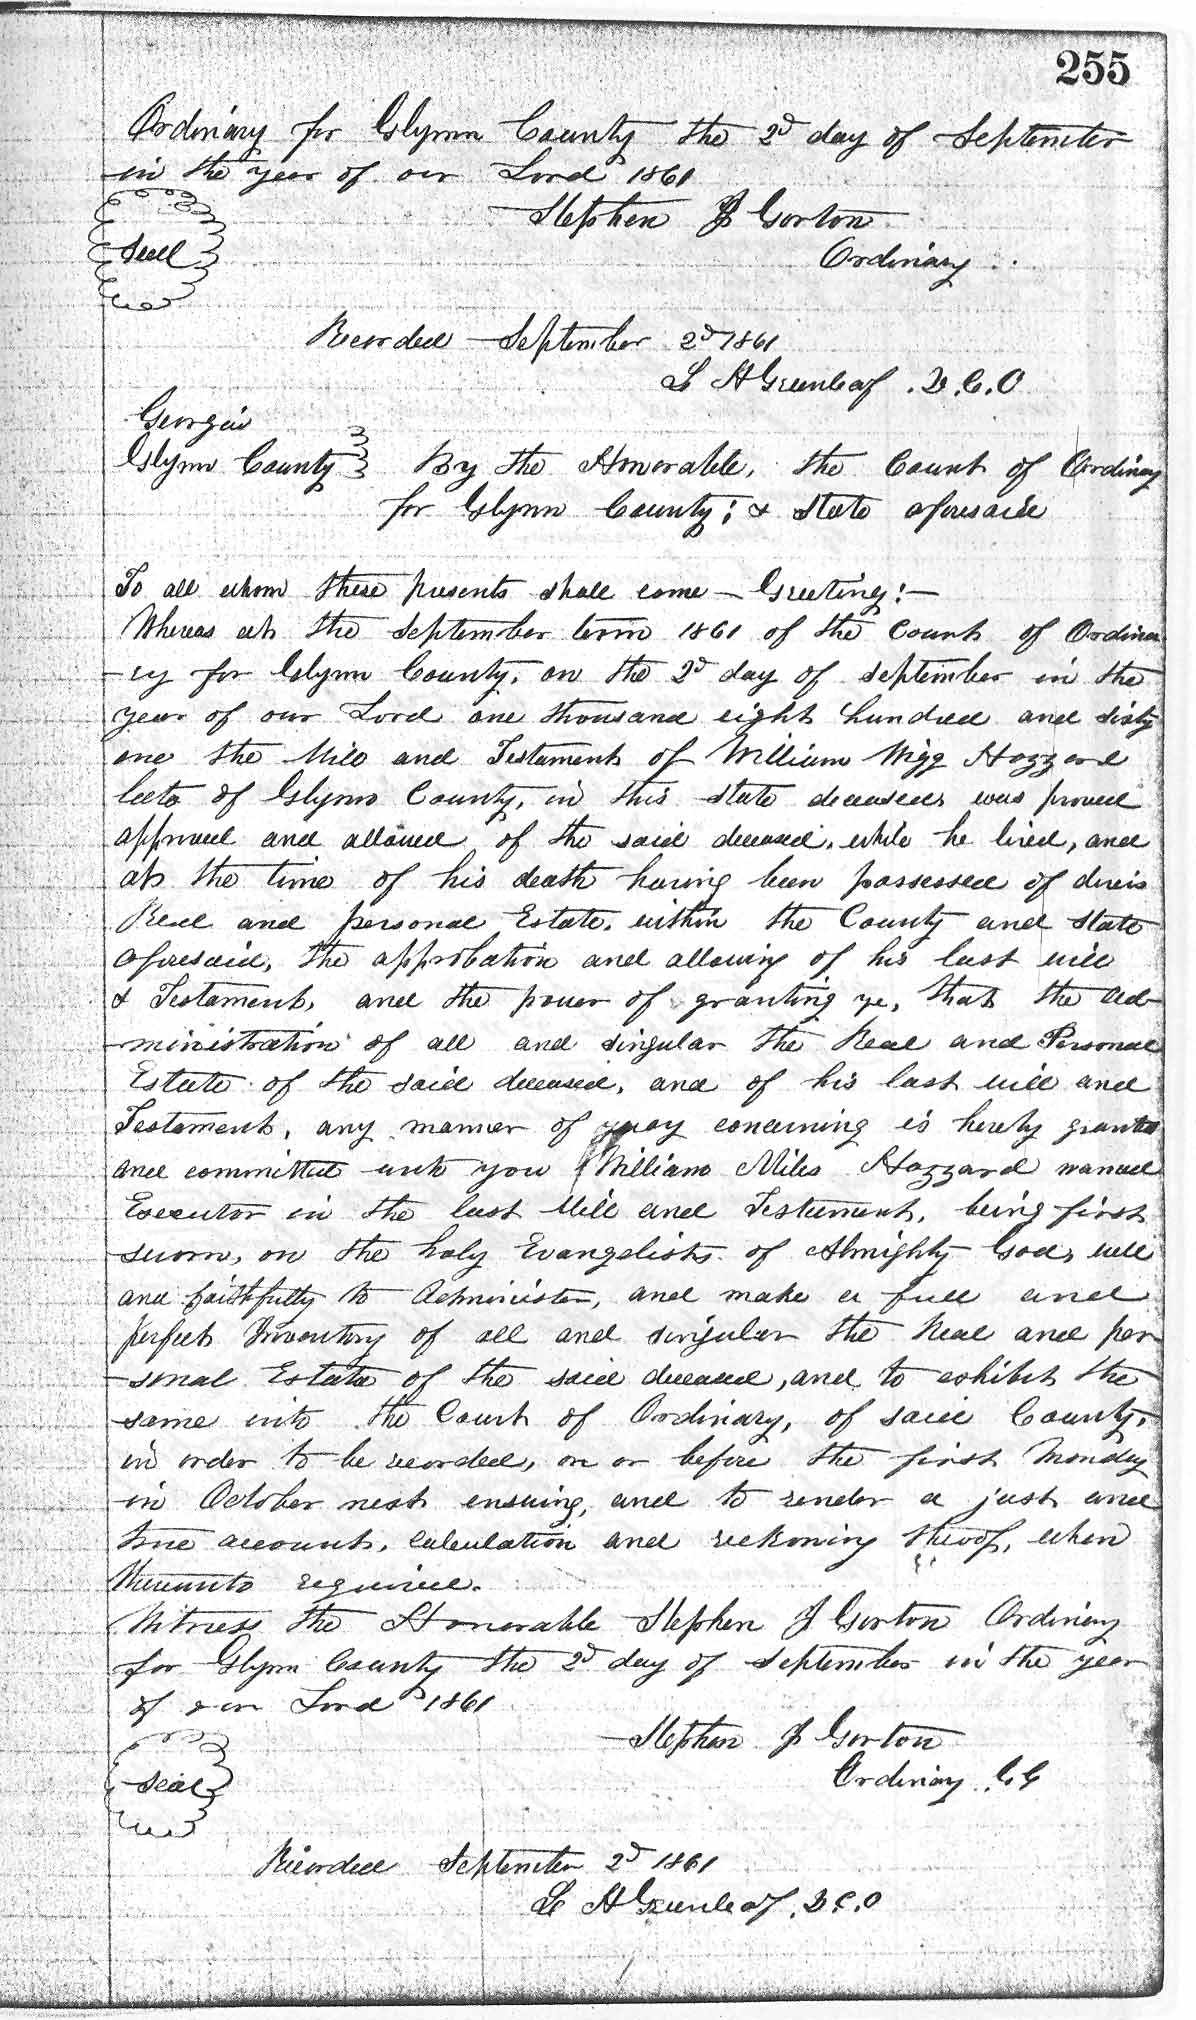 255
Ordinary for Glynn County the 2d day of September
in the year of our Lord 1861
Stephen J Gorton
Seal
Ordinary
Recorded September 2d 1861
L H Greenleaf . D.C.O
Georgia
Glynn County } By the Honorable, the Court of Ordinary
for Glynn County; & State aforesaid
To all whom these presents shall come - Greeting:-
Whereas at the September term 1861 of the Court of Ordina
-ry for Glynn County, on the 2d day of September in the
year of our Lord one thousand eight hundred and sixty
one the Will and Testament of William Wigg Hazzard
late of Glynn County, in this State deceased, was proved
approved and allowed, of the said deceased, while he lived, and
at the time of his death having been possessed of divers
Real and personal Estate, within the County and State
aforesaid, the approbation and allowing of his last will
& Testament, and the power of granting ye, that the ad-
-ministration of all and singular the Real and Personal
Estate of the said deceased, and of his last will and
Testament, any manner of way concerning is hereby granted
and committed unto you William Miles Hazzard named
Executor in the last Will and Testament, being first
sworn, on the holy Evangelists of Almighty God, well
and faithfully to Administer, and make a full and
perfect Inventory of all and singular the Real and per
-sonal Estate of the said deceased, and to exhibit the
same into the Court of Ordinary, of said County,
in order to be recorded, on or before the first Monday
in October next ensuing, and to render a just and
true account, calculation and reckoning thereof, when
thereunto required.
Witness the Honorable Stephen J Gorton Ordinary
for Glynn County the 2d day of September in the year
of our Lord 1861
Stephen J Gorton
Seal
Ordinary G.C
Recorded September 2d 1861
L H Greenleaf . D.C.O